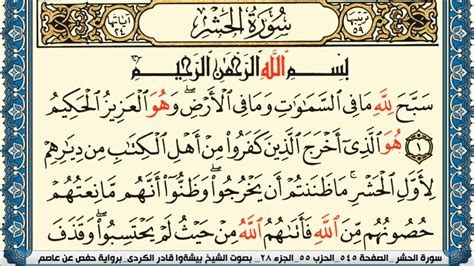 ترتيبها ٥٩ سُورَةُ الحَشْرِ آياتها ٢٤
بِسْمِ ٱللَّهِ ٱلرَّحْمَٰنِ ٱلرَّحِيمِ
سَبَّحَ لِلَّهِ مَا فِي ٱلسَّمَٰوَٰتِ وَمَا فِي ٱلْأَرْضِۖ وَهُوَ ٱلْعَزِيزُ ٱلْحَكِيمُ
١ هُوَ ٱلَّذِيٓ أَخْرَجَ ٱلَّذِينَ كَفَرُوا۟ مِنْ أَهْلِ ٱلْكِتَٰبِ مِن دِيَٰرِهِمْ
لِأَوَّلِ ٱلْحَشْرِۚ مَا ظَنَنتُمْ أَن يَخْرُجُوا۟ۖ وَظَنُّوٓا۟ أَنَّهُم مَّانِعَتُهُمْ
حُصُونُهُم مِّنَ ٱللَّهِ فَأَتَىٰهُمُ ٱللَّهُ مِنْ حَيْثُ لَمْ يَحْتَسِبُوا۟ۖ وَقَذَفَ
سورة الحشر_الصفحة ٥٤٥_الحزب ٥٥_الجزء ٢٨_ بصوت الشيخ بيشةوا قادر الكردى_برواية حفص عن عاصم